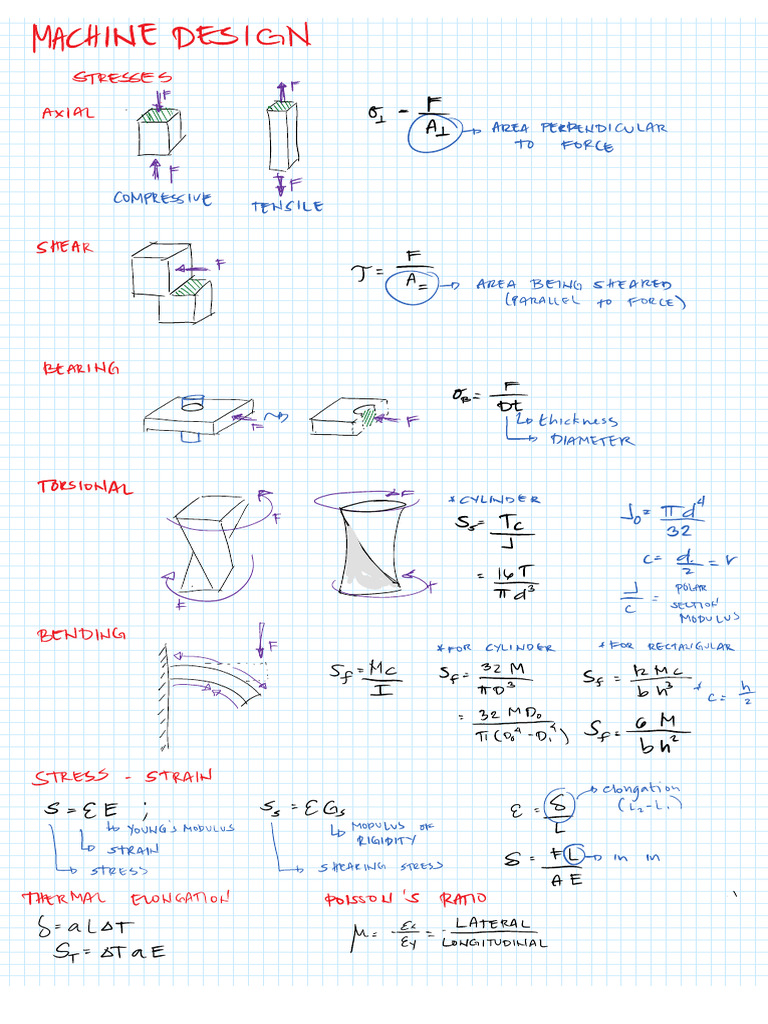 MACHINE DESIGN
STRESSES
AXIAL
F
F
F
F
COMPRESSIVE
TENSILE
σ⊥ = F / A⊥ → AREA PERPENDICULAR
TO FORCE
SHEAR
F
τ = F / A= → AREA BEING SHEARED
(PARALLEL TO FORCE)
BEARING
F
F
σB = F / Dt
→ thickness
→ DIAMETER
TORSIONAL
F
F
F
F
* CYLINDER
Ss = Tc / J
= 16T / πd³
Jo = πd⁴ / 32
c = d / 2 = r
J / c = POLAR
SECTION
MODULUS
BENDING
F
Sf = Mc / I
* FOR CYLINDER
Sf = 32 M / πD³
= 32 M Do / π(Do⁴ - Di⁴)
* FOR RECTANGULAR
Sf = 12 Mc / bh³
* c = h / 2
Sf = 6 M / bh²
STRESS - STRAIN
S = ƐE ;
→ YOUNG'S MODULUS
→ STRAIN
→ STRESS
Ss = ƐGs
→ MODULUS OF
RIGIDITY
→ SHEARING STRESS
Ɛ = δ / L
→ elongation
(L₂-L₁)
δ = FL / AE → in m
THERMAL ELONGATION
δ = aLΔT
ST = ΔTaE
POISSON'S RATIO
μ = - Ɛx / Ɛy = - LATERAL / LONGITUDINAL